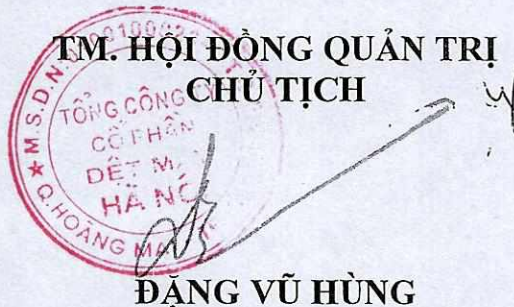 TM. HỘI ĐỒNG QUẢN TRỊ
CHỦ TỊCH
TỔNG CÔNG
CỔ PHẦN
DỆT M
HÀ NỘ
★ M.S.D.N:
Q.HOÀNG MA
ĐẶNG VŨ HÙNG